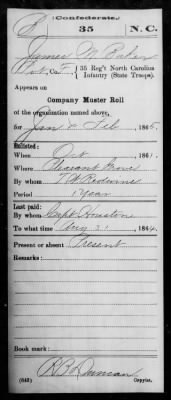 (Confederate.)
B 35 N.C.
James Baker
Pvt, Co. 35 Reg't North Carolina
Infantry (State Troops).
Appears on
Company Muster Roll
of the organization named above,
for Jan & Feb, 1865.
Enlisted:
When Oct , 1861.
Where Pleasant Grove
By whom
Period 1 Year
Last paid:
By whom Capt Houston
To what time Aug 31, 1864.
Present or absent Present
Remarks:
Book mark:
R B Duncan
(642) Copyist.